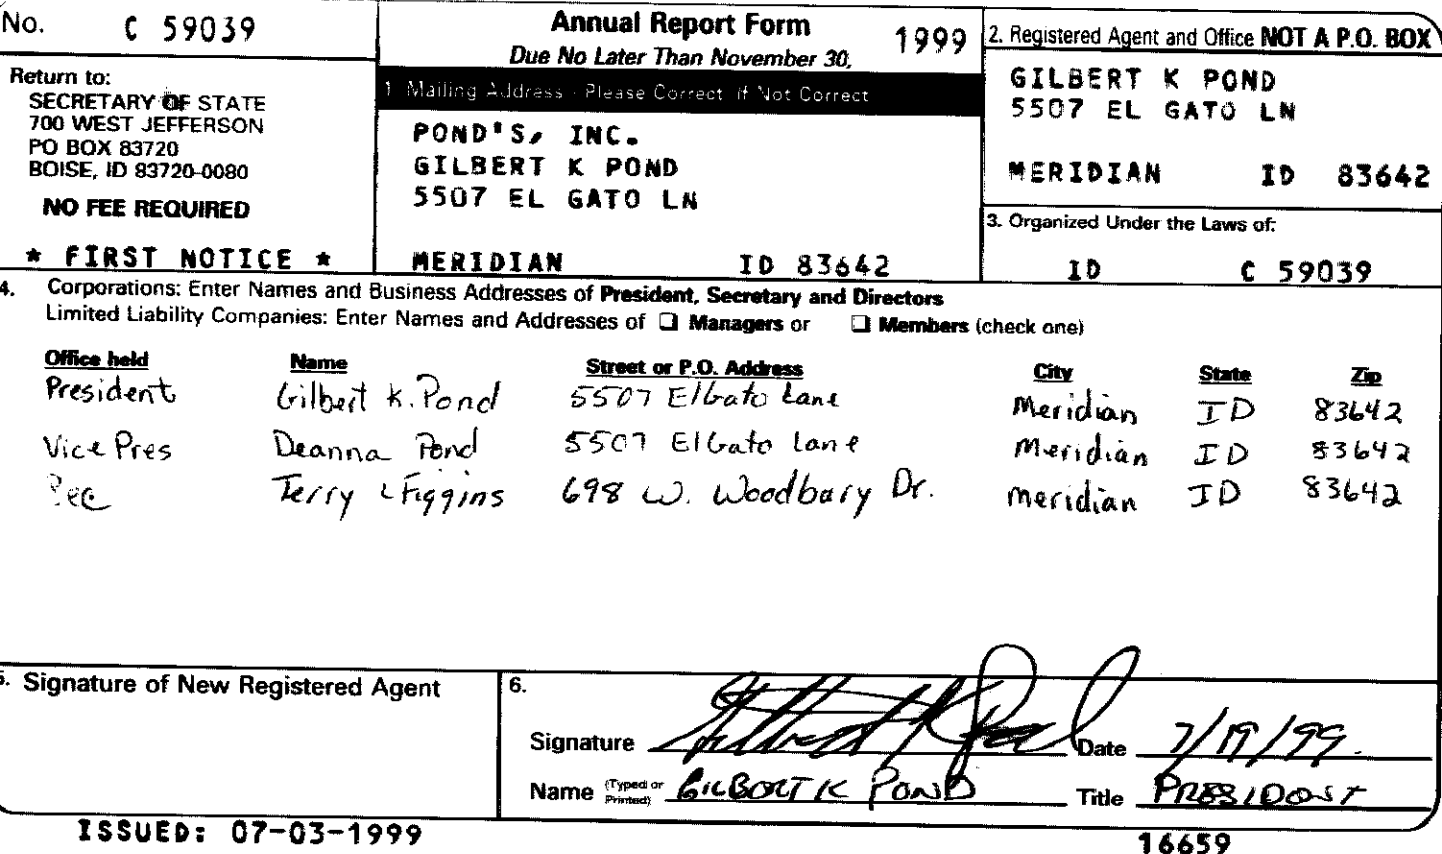 No. C 59039
Return to:
SECRETARY OF STATE
700 WEST JEFFERSON
PO BOX 83720
BOISE, ID 83720-0080
NO FEE REQUIRED
* FIRST NOTICE *
Annual Report Form 1999
Due No Later Than November 30,
1. Mailing Address - Please Correct if Not Correct
POND'S, INC.
GILBERT K POND
5507 EL GATO LN
MERIDIAN ID 83642
2. Registered Agent and Office NOT A P.O. BOX
GILBERT K POND
5507 EL GATO LN
MERIDIAN ID 83642
3. Organized Under the Laws of:
ID C 59039
4. Corporations: Enter Names and Business Addresses of President, Secretary and Directors
Limited Liability Companies: Enter Names and Addresses of ❑ Managers or ❑ Members (check one)
Office held Name Street or P.O. Address City State Zip
President Gilbert K. Pond 5507 El Gato Lane Meridian ID 83642
Vice Pres Deanna Pond 5507 El Gato Lane Meridian ID 83642
Sec Terry L Figgins 698 W. Woodbury Dr. Meridian ID 83642
5. Signature of New Registered Agent
6.
Signature Gilbert K Pond Date 7/19/99.
Name (Typed or Printed) GILBERT K POND Title PRESIDENT
ISSUED: 07-03-1999
16659